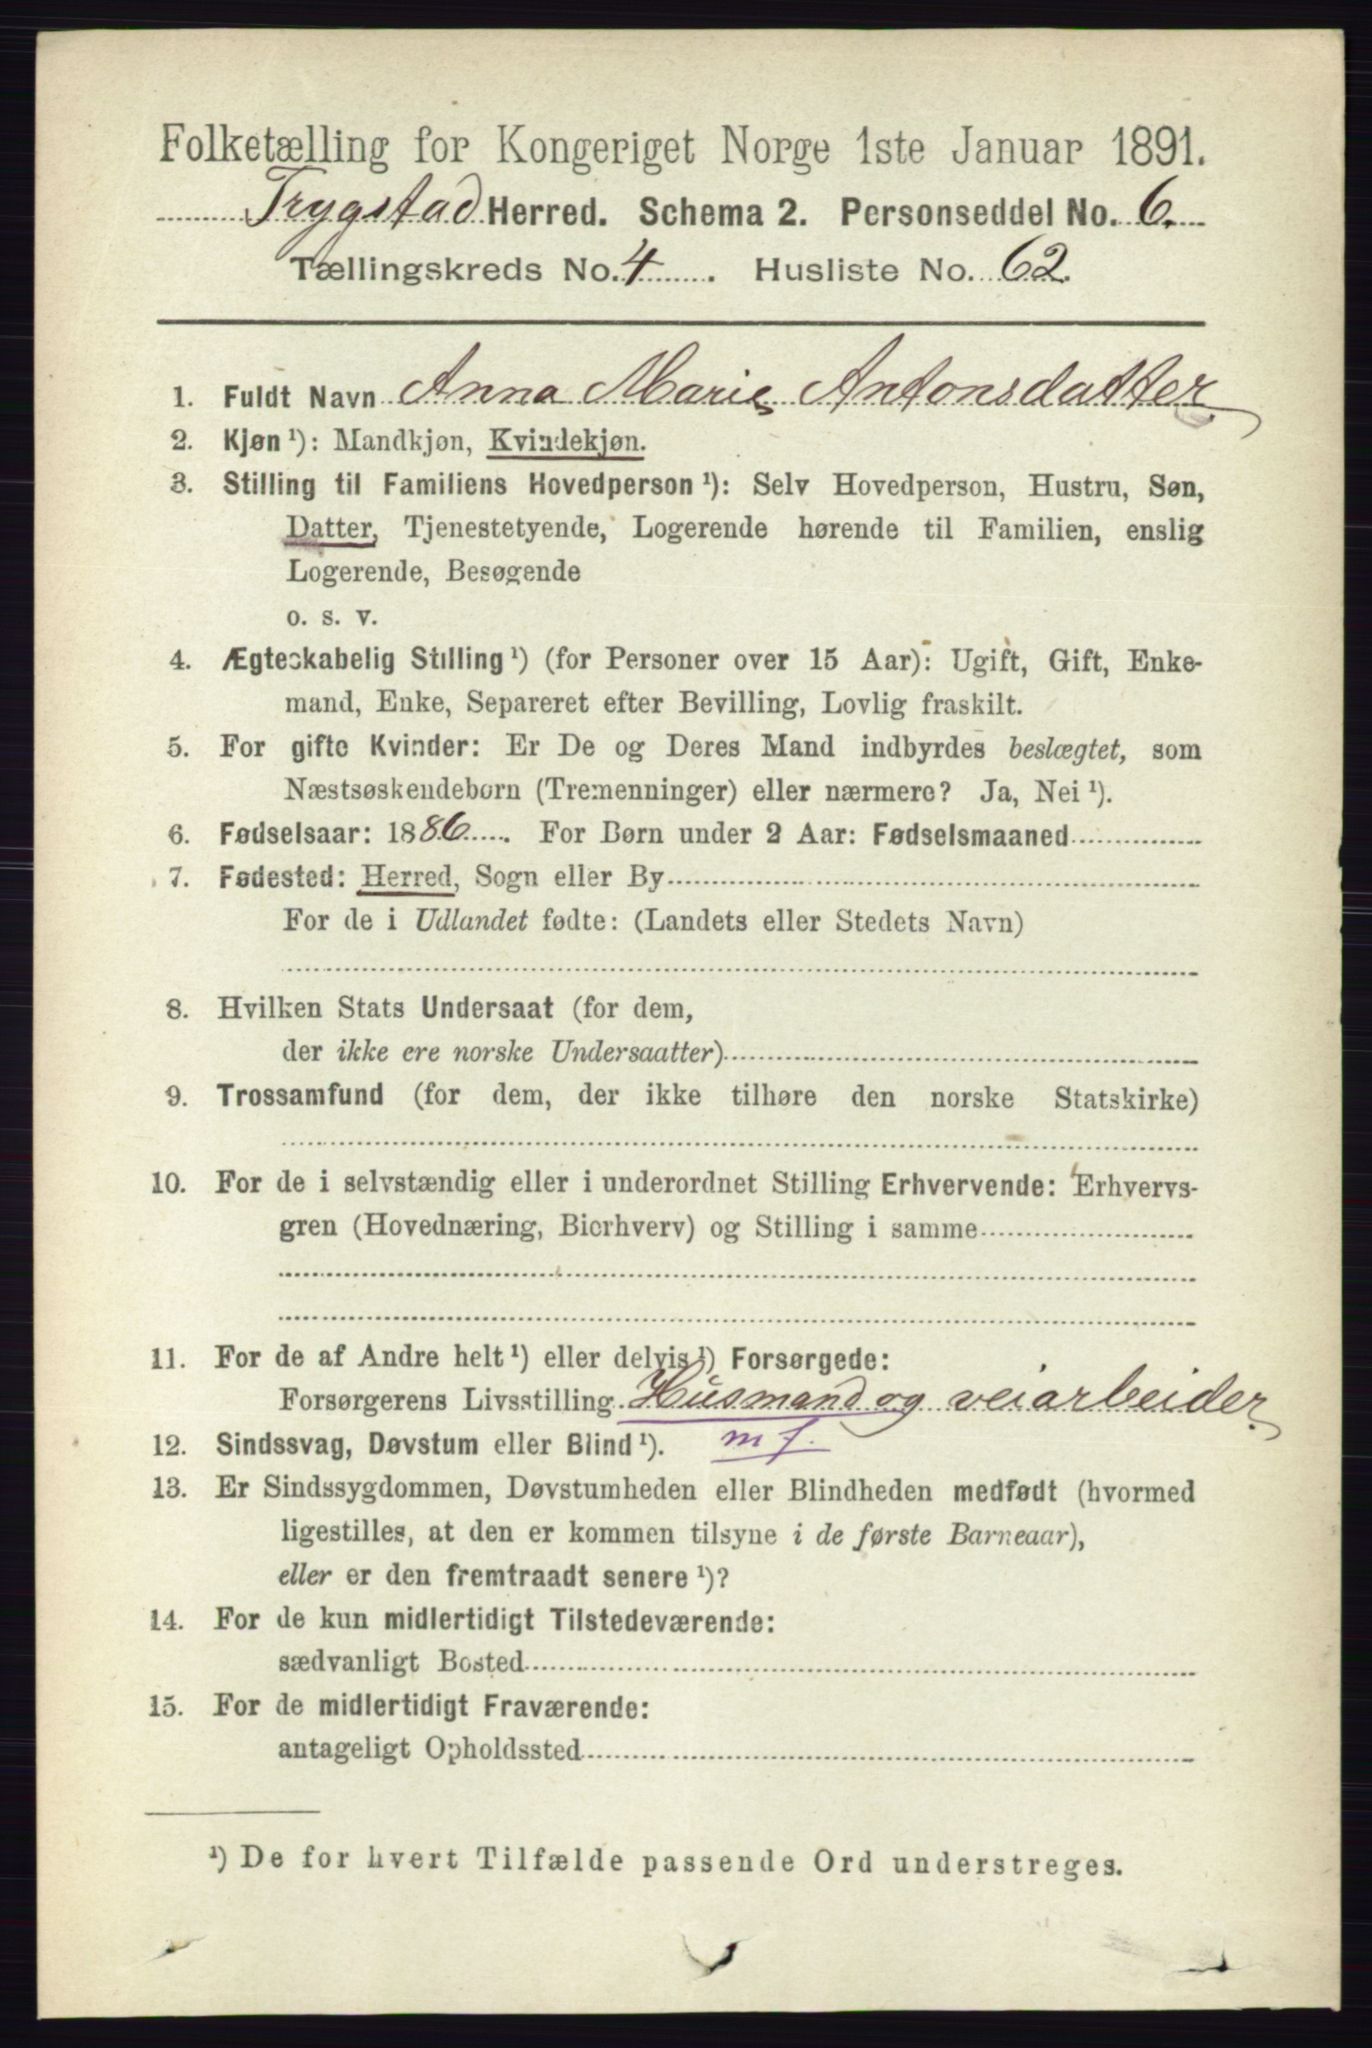 Folketælling for Kongeriget Norge 1ste Januar 1891.
Trygstad Herred. Schema 2. Personseddel No. 6.
Tællingskreds No. 4. Husliste No. 62.
1. Fuldt Navn Anna Marie Antonsdatter
2. Kjøn ¹): Mandkjøn, Kvindekjøn.
3. Stilling til Familiens Hovedperson ¹): Selv Hovedperson, Hustru, Søn,
Datter, Tjenestetyende, Logerende hørende til Familien, enslig
Logerende, Besøgende
o. s. v.
4. Ægteskabelig Stilling ¹) (for Personer over 15 Aar): Ugift, Gift, Enke-
mand, Enke, Separeret efter Bevilling, Lovlig fraskilt.
5. For gifte Kvinder: Er De og Deres Mand indbyrdes beslægtet, som
Næstsøskendebørn (Tremenninger) eller nærmere? Ja, Nei ¹).
6. Fødselsaar: 1886. For Børn under 2 Aar: Fødselsmaaned
7. Fødested: Herred, Sogn eller By
For de i Udlandet fødte: (Landets eller Stedets Navn)
8. Hvilken Stats Undersaat (for dem,
der ikke ere norske Undersaatter)
9. Trossamfund (for dem, der ikke tilhøre den norske Statskirke)
10. For de i selvstændig eller i underordnet Stilling Erhvervende: Erhvervs-
gren (Hovednæring, Bierhverv) og Stilling i samme
11. For de af Andre helt ¹) eller delvis ¹) Forsørgede:
Forsørgerens Livsstilling Husmand og veiarbeider
12. Sindssvag, Døvstum eller Blind ¹). m f.
13. Er Sindssygdommen, Døvstumheden eller Blindheden medfødt (hvormed
ligestilles, at den er kommen tilsyne i de første Barneaar),
eller er den fremtraadt senere ¹)?
14. For de kun midlertidigt Tilstedeværende:
sædvanligt Bosted
15. For de midlertidigt Fraværende:
antageligt Opholdssted
¹) De for hvert Tilfælde passende Ord understreges.